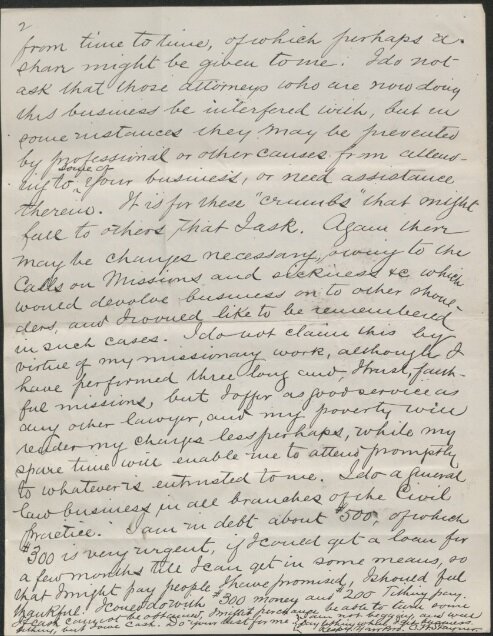 2
from time to time, of which perhaps a
share might be given to me. I do not
ask that those attorneys who are now doing
this business be interfered with, but in
some instances they may be prevented
by professional or other causes from attend-
some of
ing to your business, or need assistance
therein. It is for these "crumbs" that might
fall to others that I ask. Again there
may be changes necessary, owing to the
Calls on Missions and sickness &c which
would devolve business on to other shoul-
ders, and I would like to be remembered
in such cases. I do not claim this by
virtue of my missionary work, although I
have performed three long and, I trust, faith-
ful missions, but I offer as good service as
any other lawyer, and my poverty will
render my charges less perhaps, while my
spare time will enable me to attend promptly
to whatever is entrusted to me. I do a general
law business in all branches of the Civil
Practice. I am in debt about $500, of which
$300 is very urgent, if I could get a loan for
a few months till I can get in some means, so
that I might pay people I have promised, I should feel
thankful. I could do with $300 money and $200 Tithing pay.
If cash can not be obtained, I might perchance be able to turn some
tithing, but some cash. Do your best for me.
I am not begging and will